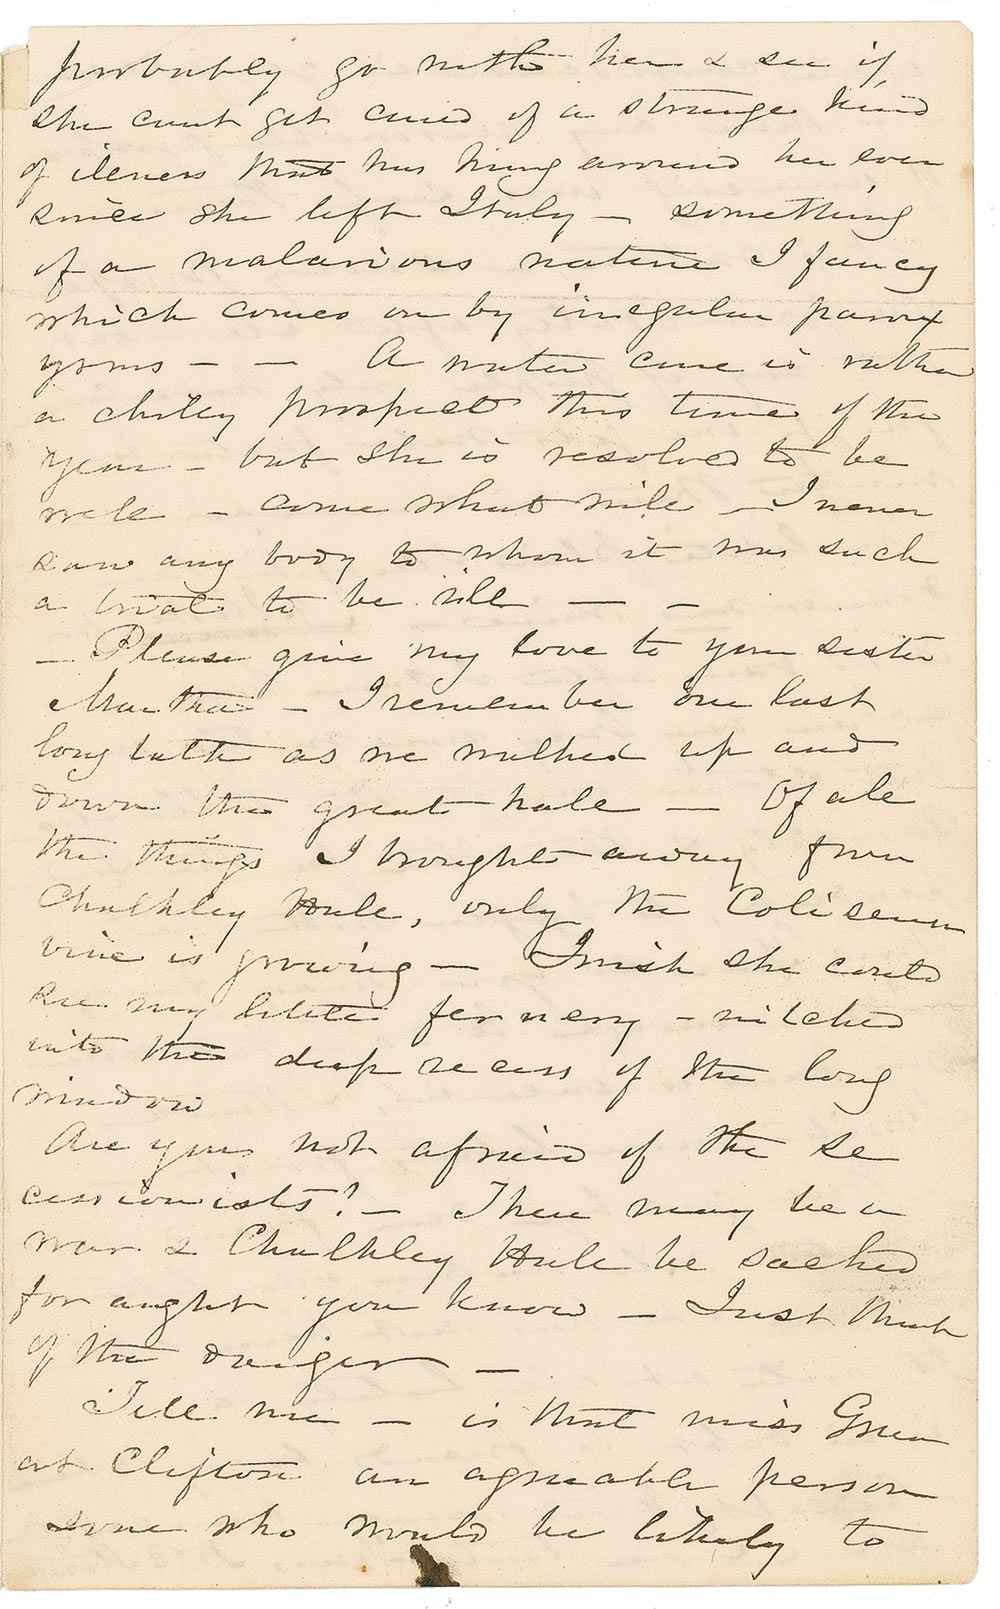 probably go with her & see if
she cant get cured of a strange kind
of ilness that has hung around her ever
since she left Italy — something
of a malarious nature I fancy
which comes on by irregular parox
ysms — — A water cure is rather
a chilly prospect this time of the
year — but she is resolved to be
well — come what will — I never
saw any body to whom it was such
a trial to be ill — —
— Please give my love to your sister
Martha — I remember our last
long talk as we walked up and
down the great hall — Of all
the things I brought away from
Chalkley Hall, only the Coliseum
vine is growing — I wish she could
see my little fernery — nitched
into the deep recess of the long
window
Are you not afraid of the se
cessionists? — There may be a
war & Chalkley Hall be sacked
for aught you know — Just think
of the danger —
Tell me — is that miss Green
at Clifton an agreable person
some who would be likely to